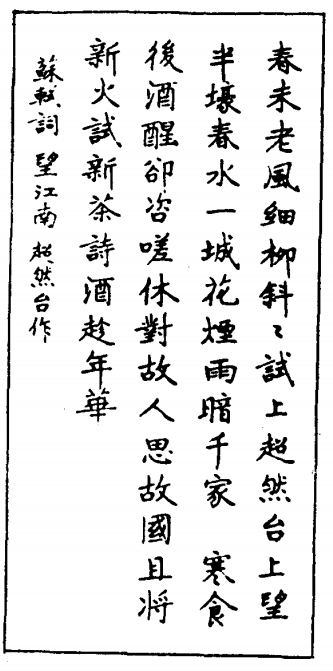 春未老風細柳斜〻試上超然台上望
半壕春水一城花煙雨暗千家　寒食
後酒醒卻咨嗟休對故人思故國且将
新火試新茶詩酒趁年華
蘇軾詞 望江南 超然台作